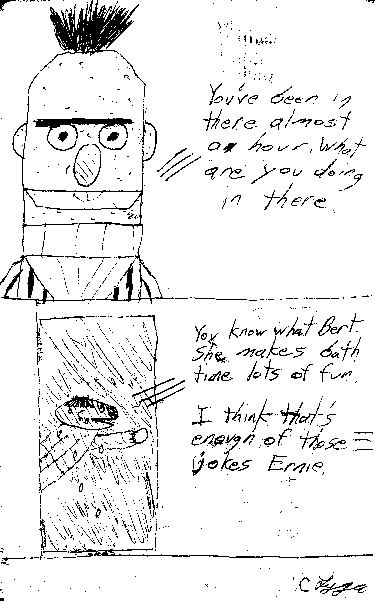 You've been in
there almost
an hour. What
are you doing
in there.
You know what Bert
She makes bath
time lots of fun.
I think that's
enough of those
jokes Ernie.